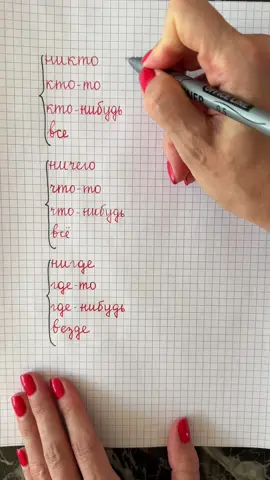 никто
кто-то
кто-нибудь
все
ничего
что-то
что-нибудь
всё
нигде
где-то
где-нибудь
везде